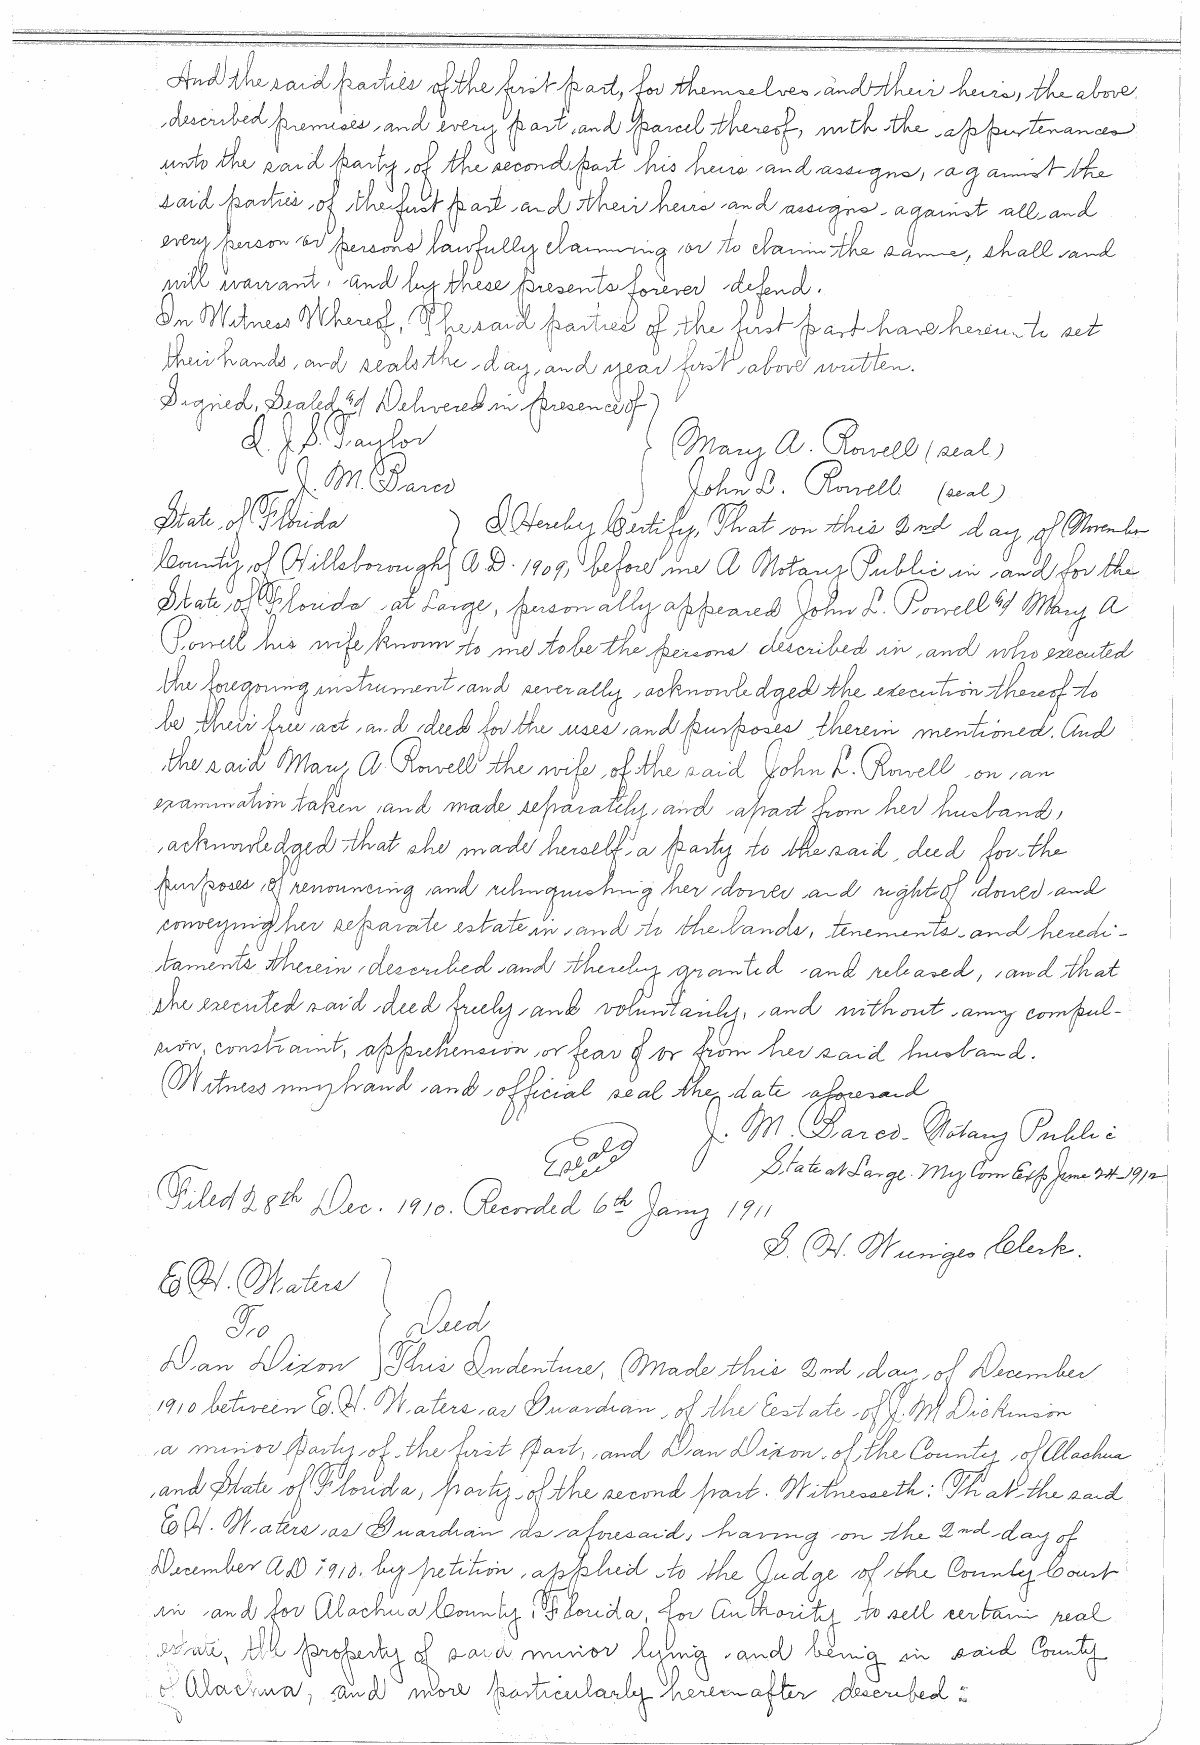 And the said parties of the first part, for themselves and their heirs, the above
described premises and every part and parcel thereof, with the appurtenances
unto the said party of the second part his heirs and assigns, against the
said parties of the first part and their heirs and assigns against all and
every person or persons lawfully claiming or to claim the same, shall and
will warrant, and by these presents forever defend.
In Witness Whereof, The said parties of the first part have hereunto set
their hands and seals the day and year first above written.
Signed, Sealed &d Delivered in presence of
L. J. S. Taylor
Mary A. Rowell (seal)
J. M. Barco
John L. Rowell (seal)
State of Florida } I Hereby Certify, That on this 2nd day of November
County of Hillsborough } A.D. 1909, before me A Notary Public in and for the
State of Florida at Large, personally appeared John L. Rowell &d Mary A
Rowell his wife known to me to be the persons described in and who executed
the foregoing instrument and severally acknowledged the execution thereof to
be their free act and deed for the uses and purposes therein mentioned. And
the said Mary A. Rowell the wife of the said John L. Rowell on an
examination taken and made separately and apart from her husband,
acknowledged that she made herself a party to the said deed for the
purposes of renouncing and relinquishing her dower and right of dower and
conveying her separate estate in and to the lands, tenements and heredi-
taments therein described and thereby granted and released, and that
she executed said deed freely and voluntarily, and without any compul-
sion, constraint, apprehension or fear of or from her said husband.
Witness my hand and official seal the date aforesaid
J. M. Barco - Notary Public
Seal
State at Large. My Com Exp June 24-1912
Filed 28th Dec. 1910. Recorded 6th Jany 1911
S. H. Wienges Clerk.
E H. Waters
To } Deed
Dan Dixon } This Indenture, Made this 2nd day of December
1910 between E. H. Waters as Guardian of the Estate of J. M Dickinson
a minor party of the first part, and Dan Dixon of the County of Alachua
and State of Florida, party of the second part. Witnesseth: That the said
E H. Waters as Guardian as aforesaid, having on the 2nd day of
December A D 1910. by petition applied to the Judge of the County Court
in and for Alachua County, Florida, for Authority to sell certain real
estate, the property of said minor lying and being in said County
of Alachua, and more particularly hereinafter described: